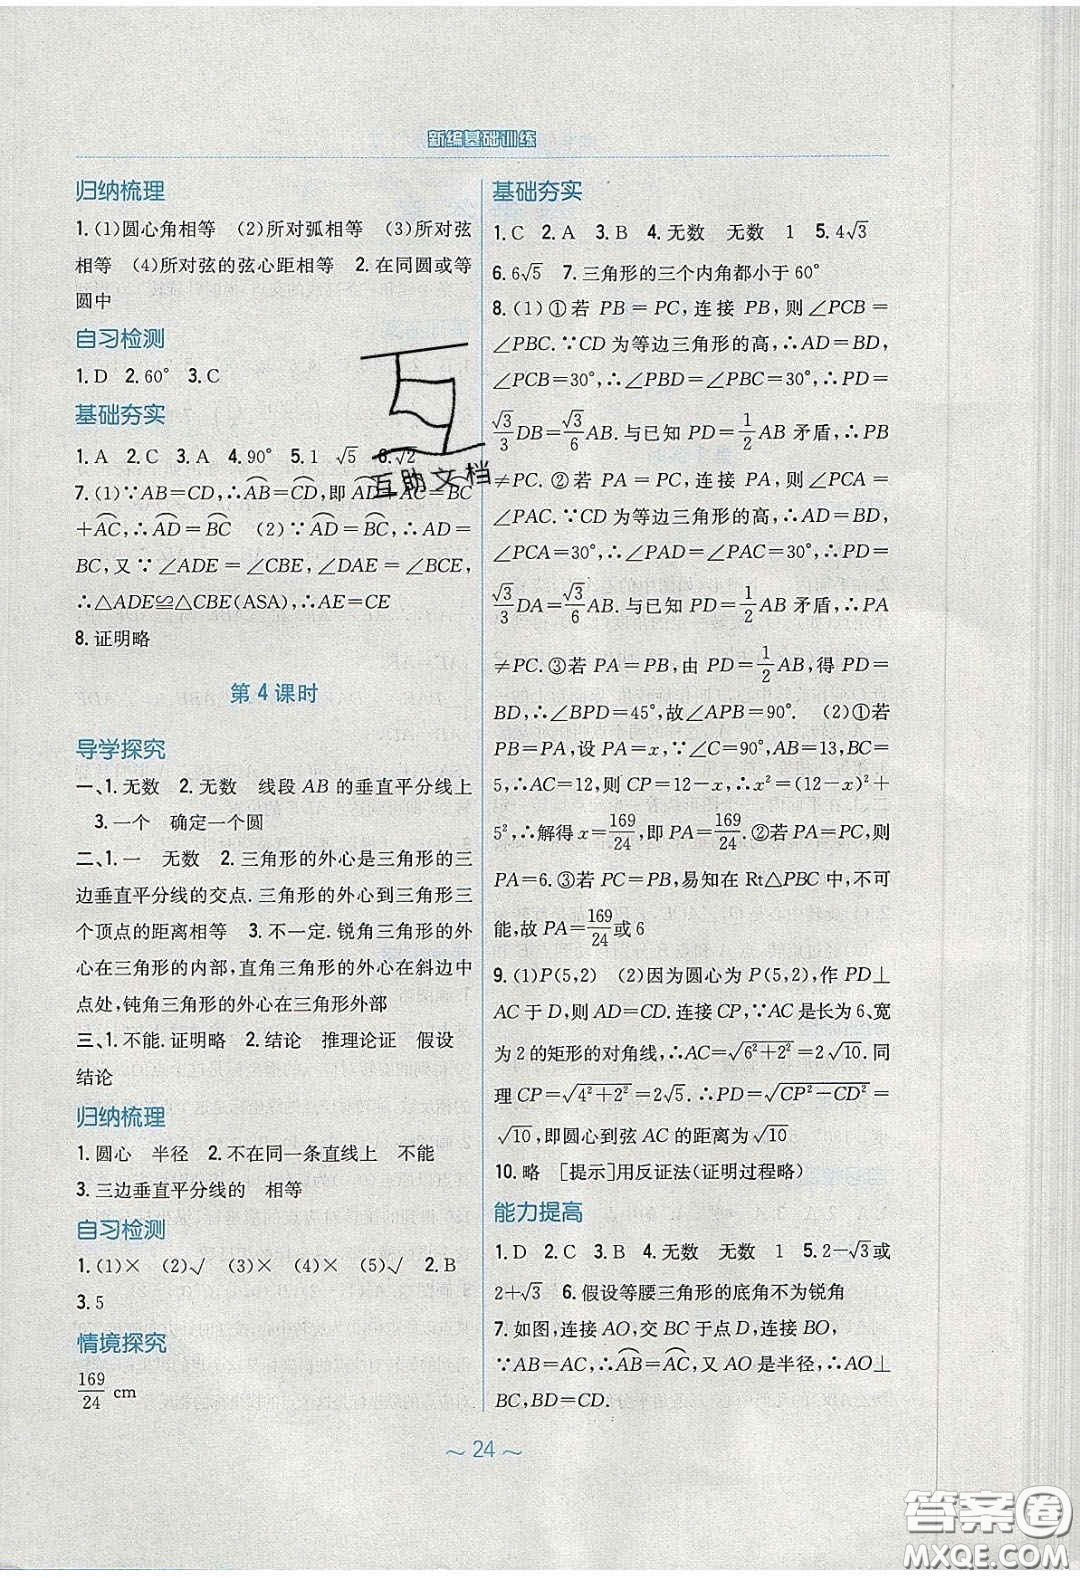 新编基础训练
归纳梳理
1.(1)圆心角相等 (2)所对弧相等 (3)所对弦
相等 (4)所对弦的弦心距相等 2.在同圆或等
圆中
自习检测
1.D 2.60° 3.C
基础夯实
1.A 2.C 3.A 4.90° 5.1 √5 6.√2
7.(1)∵AB=CD,∴⌒AB=⌒CD,即⌒AD+⌒AC=⌒BC
+⌒AC,∴⌒AD=⌒BC (2)∵⌒AD=⌒BC,∴AD=
BC,又∵∠ADE=∠CBE,∠DAE=∠BCE,
∴△ADE≌△CBE(ASA),∴AE=CE
8.证明略
第4课时
导学探究
一、1.无数 2.无数 线段AB的垂直平分线上
3.一个 确定一个圆
二、1.一 无数 2.三角形的外心是三角形的三
边垂直平分线的交点.三角形的外心到三角形三
个顶点的距离相等 3.不一定.锐角三角形的外
心在三角形的内部,直角三角形的外心在斜边中
点处,钝角三角形的外心在三角形外部
三、1.不能.证明略 2.结论 推理论证 假设
结论
归纳梳理
1.圆心 半径 2.不在同一条直线上 不能
3.三边垂直平分线的 相等
自习检测
1.(1)× (2)√ (3)× (4)× (5)√ 2.B
3.5
情境探究
169/24 cm
基础夯实
1.C 2.A 3.B 4.无数 无数 1 5.4√3
6.6√5 7.三角形的三个内角都小于60°
8.(1)①若PB=PC,连接PB,则∠PCB=
∠PBC.∵CD为等边三角形的高,∴AD=BD,
∠PCB=30°,∴∠PBD=∠PBC=30°,∴PD=
√3/3DB=√3/6AB.与已知PD=1/2AB矛盾,∴PB
≠PC.②若PA=PC,连接PA,则∠PCA=
∠PAC.∵CD为等边三角形的高,∴AD=BD,
∠PCA=30°,∴∠PAD=∠PAC=30°,∴PD=
√3/3DA=√3/6AB.与已知PD=1/2AB矛盾,∴PA
≠PC.③若PA=PB,由PD=1/2AB,得PD=
BD,∴∠BPD=45°,故∠APB=90°. (2)①若
PB=PA,设PA=x,∵∠C=90°,AB=13,BC=
5,∴AC=12,则CP=12-x,∴x²=(12-x)²+
5²,∴解得x=169/24,即PA=169/24.②若PA=PC,则
PA=6.③若PC=PB,易知在Rt△PBC中,不可
能,故PA=169/24或6
9.(1)P(5,2) (2)因为圆心为P(5,2),作PD⊥
AC于D,则AD=CD.连接CP,∵AC是长为6、宽
为2的矩形的对角线,∴AC=√(6²+2²)=2√10.同
理CP=√(4²+2²)=2√5.∴PD=√(CP²-CD²)=
√10,即圆心到弦AC的距离为√10
10.略 [提示]用反证法(证明过程略)
能力提高
1.D 2.C 3.B 4.无数 无数 1 5.2-√3或
2+√3 6.假设等腰三角形的底角不为锐角
7.如图,连接AO,交BC于点D,连接BO,
∵AB=AC,∴⌒AB=⌒AC,又AO是半径,∴AO⊥
BC,BD=CD.
互助文档
~24~
答案圈
MXQE.COM